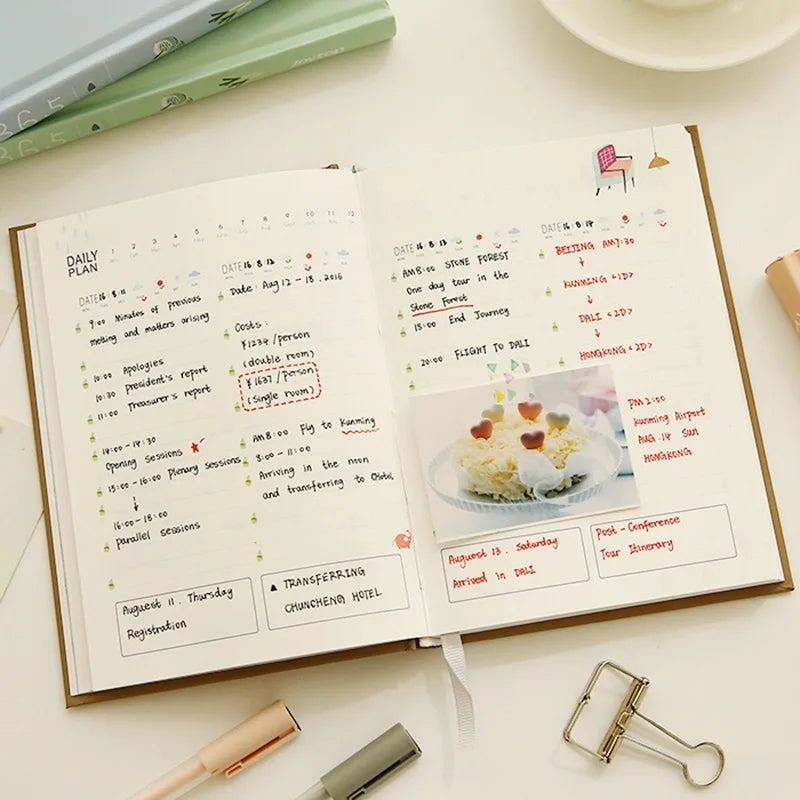 365
365
Joytop
DAILY
PLAN
1 2 3 4 5 6 7 8 9 10 11 12
DATE 16 · 8 · 11
9:00 Minutes of previous
metting and matters arising
10:00 Apologies
10:30 President's report
11:00 Treasurer's report
14:00 - 14:30
Opening sessions
15:00 - 16:00 Plenary sessions
16:00 - 18:00
parallel sessions
Auguest 11 . Thursday
Registration
DATE 16 · 8 · 12
Date: Aug 12 - 18 . 2016
Costs:
¥1234 /person
(double room)
¥1637 /person
(single room)
AM8:00 Fly to Kunming
8:00 - 11:00
Arriving in the noon
and transferring to CHotel
▲ TRANSFERRING
CHUNCHENG HOTEL
DATE 16 · 8 · 13
AM8:00 STONE FOREST
One day tour in the
Stone Forest
18:00 End Journey
20:00 FLIGHT TO DALI
Auguest 13 . Saturday
Arrived in DALI
DATE 16 · 8 · 14
BEIJING AM7:30
↓
KUNMING <1D>
↓
DALI <2D>
↓
HONGKONG <2D>
PM 2:00
kunming Airport
AUG. 14 Sun
HONGKONG
Post - Conference
Tour Itinerary